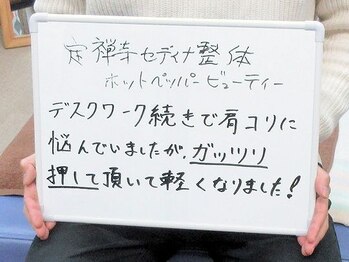 定禅寺セディナ整体
ホットペッパービューティー
デスクワーク続きで肩コリに
悩んでいましたが、ガッツリ
押して頂いて軽くなりました!